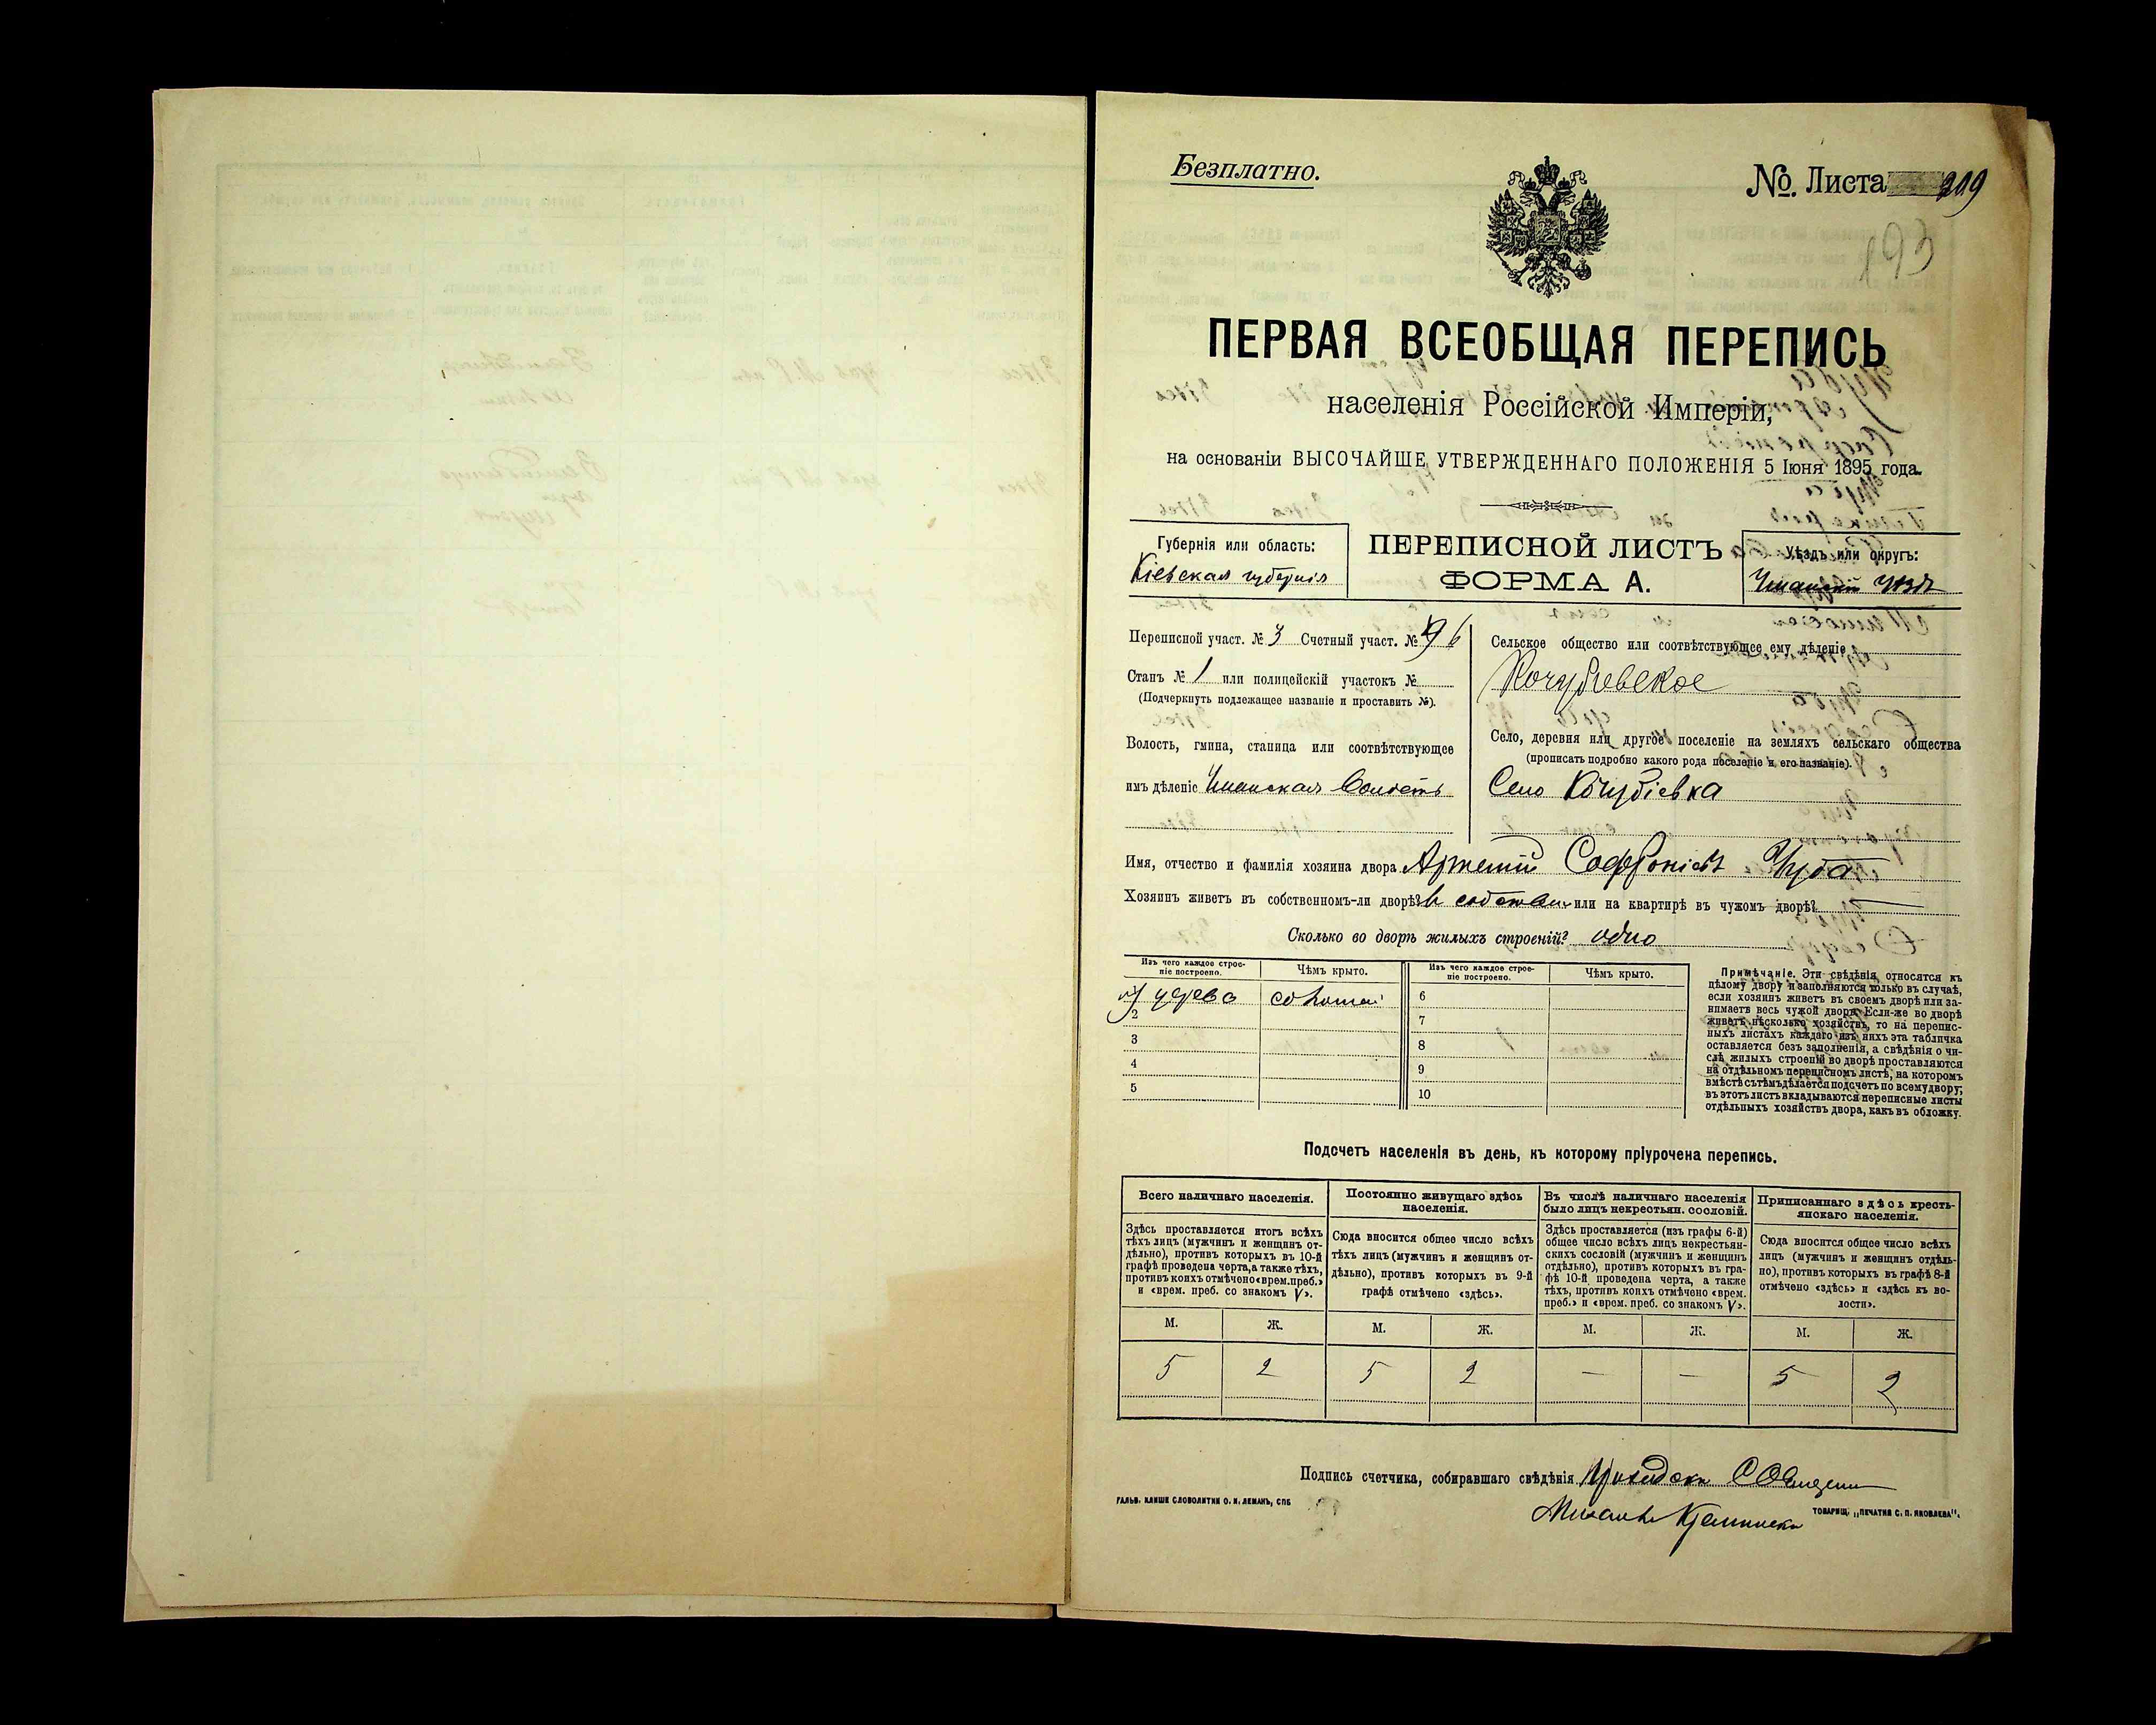 Безплатно.
№. Листа 209
193
ПЕРВАЯ ВСЕОБЩАЯ ПЕРЕПИСЬ
населенія Россійской Имперіи,
на основаніи ВЫСОЧАЙШЕ УТВЕРЖДЕННАГО ПОЛОЖЕНІЯ 5 Іюня 1895 года.
Губернія или область:
Кіевская губернія
ПЕРЕПИСНОЙ ЛИСТЪ
ФОРМА А.
Уѣздъ или округъ:
Уманскій уѣздъ
Переписной участ. № 3 Счетный участ. № 96
Станъ № 1 или полицейскій участокъ №
(Подчеркнуть подлежащее названіе и проставить №).
Волость, гмина, станица или соотвѣтствующее
имъ дѣленіе Уманская волость
Сельское общество или соотвѣтствующее ему дѣленіе
Кочубіевское
Село, деревня или другое поселеніе на земляхъ сельскаго общества
(прописать подробно какого рода поселеніе и его названіе).
Село Кочубіевка
Имя, отчество и фамилія хозяина двора Артемій Софроніевъ Чуба
Хозяинъ живетъ въ собственномъ-ли дворѣ? въ собствен. или на квартирѣ въ чужомъ дворѣ? —
Сколько во дворѣ жилыхъ строеній? одно
Изъ чего каждое строе-
ніе построено.
Чѣмъ крыто.
Изъ чего каждое строе-
ніе построено.
Чѣмъ крыто.
изъ дерева соломой
2
3
4
5
6
7
8
9
10
Примѣчаніе. Эти свѣдѣнія относятся къ
цѣлому двору и заполняются только въ случаѣ,
если хозяинъ живетъ въ своемъ дворѣ или за-
нимаетъ весь чужой дворъ. Если-же во дворѣ
живетъ нѣсколько хозяйствъ, то на перепис-
ныхъ листахъ каждаго изъ нихъ эта табличка
оставляется безъ заполненія, а свѣдѣнія о чи-
слѣ жилыхъ строеній во дворѣ проставляются
на отдѣльномъ переписномъ листѣ, на которомъ
вмѣстѣ съ тѣмъ дѣлается подсчетъ по всему двору;
въ этотъ листъ вкладываются переписные листы
отдѣльныхъ хозяйствъ двора, какъ въ обложку.
Подсчетъ населенія въ день, къ которому пріурочена перепись.
Всего наличнаго населенія.
Здѣсь проставляется итогъ всѣхъ
тѣхъ лицъ (мужчинъ и женщинъ от-
дѣльно), противъ которыхъ въ 10-й
графѣ проведена черта, а также тѣхъ,
противъ коихъ отмѣчено «врем. преб.»
и «врем. преб. со знакомъ V».
Постоянно живущаго здѣсь
населенія.
Сюда вносится общее число всѣхъ
тѣхъ лицъ (мужчинъ и женщинъ от-
дѣльно), противъ которыхъ въ 9-й
графѣ отмѣчено «здѣсь».
Въ числѣ наличнаго населенія
было лицъ некрестьян. сословій.
Здѣсь проставляется (изъ графы 6-й)
общее число всѣхъ лицъ некрестьян-
скихъ сословій (мужчинъ и женщинъ
отдѣльно), противъ которыхъ въ гра-
фѣ 10-й проведена черта, а также
тѣхъ, противъ коихъ отмѣчено «врем.
преб.» и «врем. преб. со знакомъ V».
Приписаннаго здѣсь кресть-
янскаго населенія.
Сюда вносится общее число всѣхъ
лицъ (мужчинъ и женщинъ отдѣль-
но), противъ которыхъ въ графѣ 8-й
отмѣчено «здѣсь» и «здѣсь къ во-
лости».
М. Ж. М. Ж. М. Ж. М. Ж.
5 2 5 2 — — 5 2
Подпись счетчика, собиравшаго свѣдѣнія
Михаилъ
ГАЛЬВ. КЛИШЕ СЛОВОЛИТНИ О. И. ЛЕМАНЪ, СПБ
ТОВАРИЩ. „ПЕЧАТНЯ С. П. ЯКОВЛЕВА".